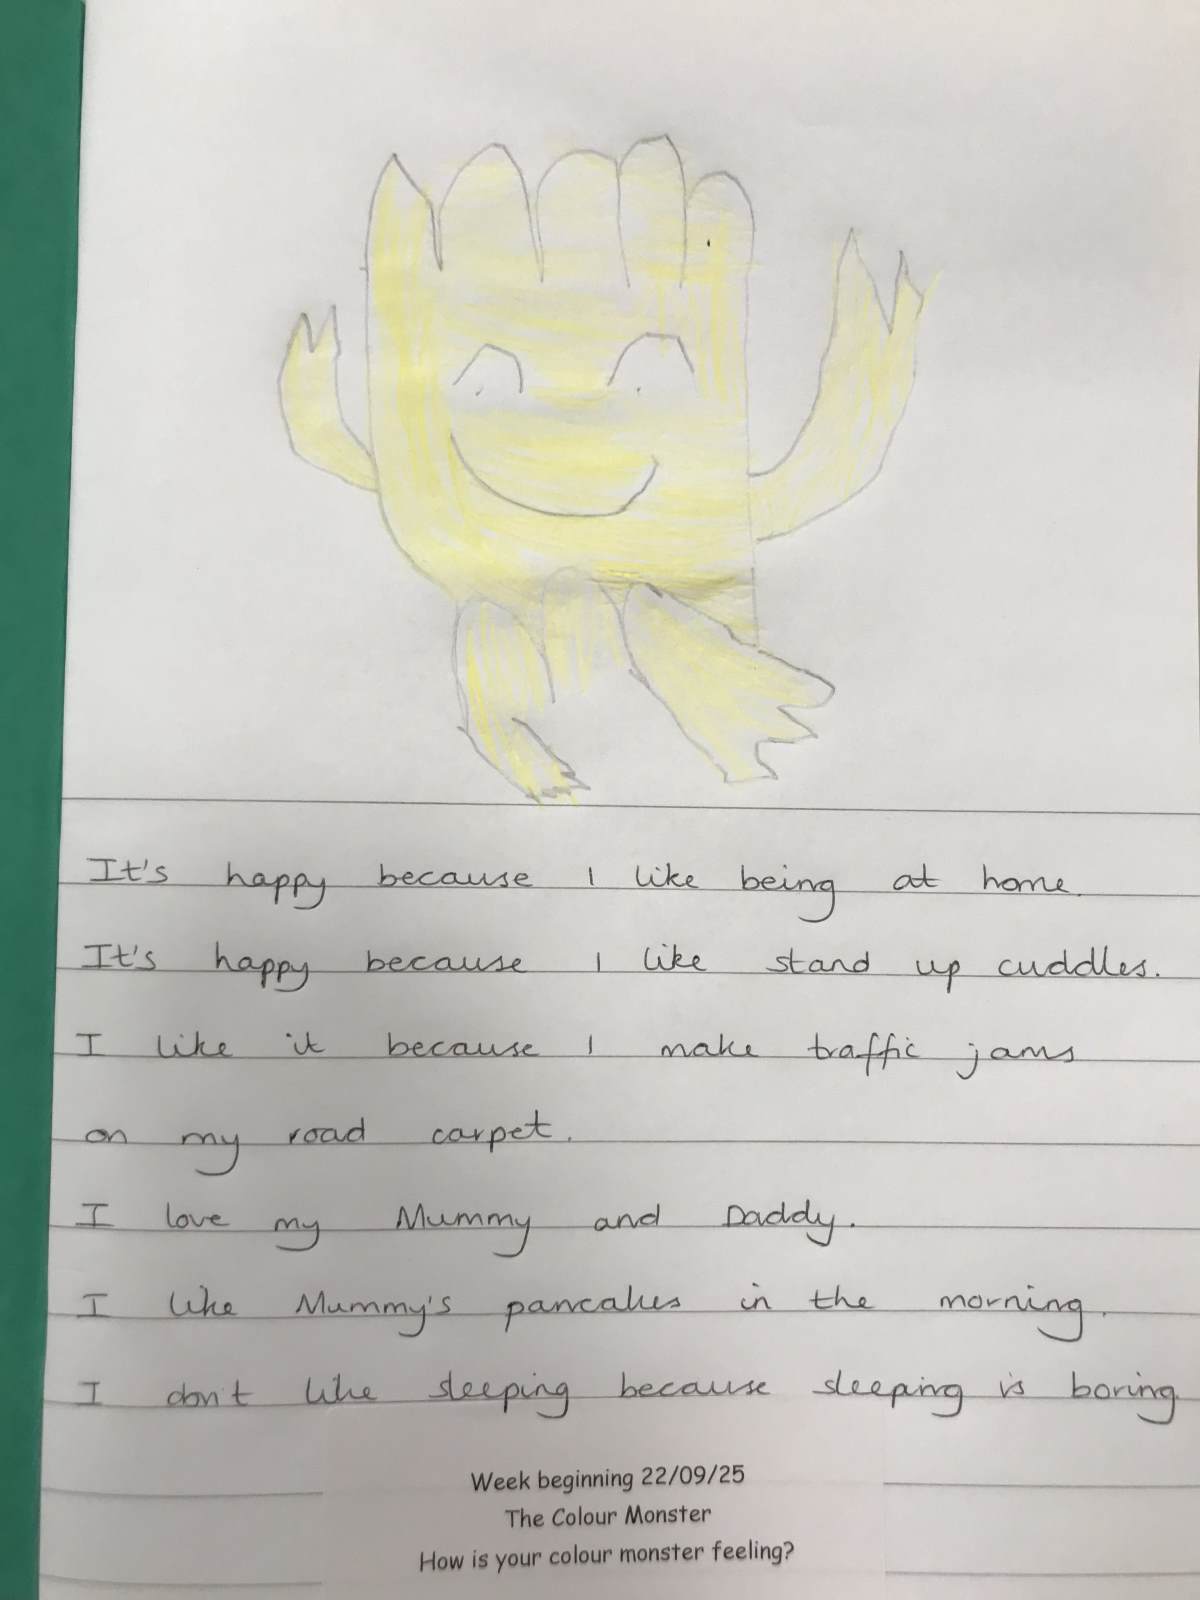 It's happy because I like being at home.
It's happy because I like stand up cuddles.
I like it because I make traffic jams
on my road carpet.
I love my Mummy and Daddy.
I like Mummy's pancakes in the morning.
I don't like sleeping because sleeping is boring
Week beginning 22/09/25
The Colour Monster
How is your colour monster feeling?